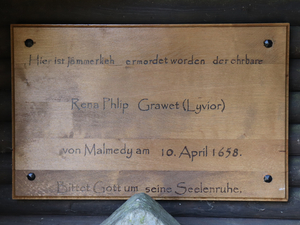 Hier ist jömmerlich ermordet worden der ehrbare
Rena Phlip Grawet (Lyvior)
von Malmedy am 10. April 1658.
Bittet Gott um seine Seelenruhe.